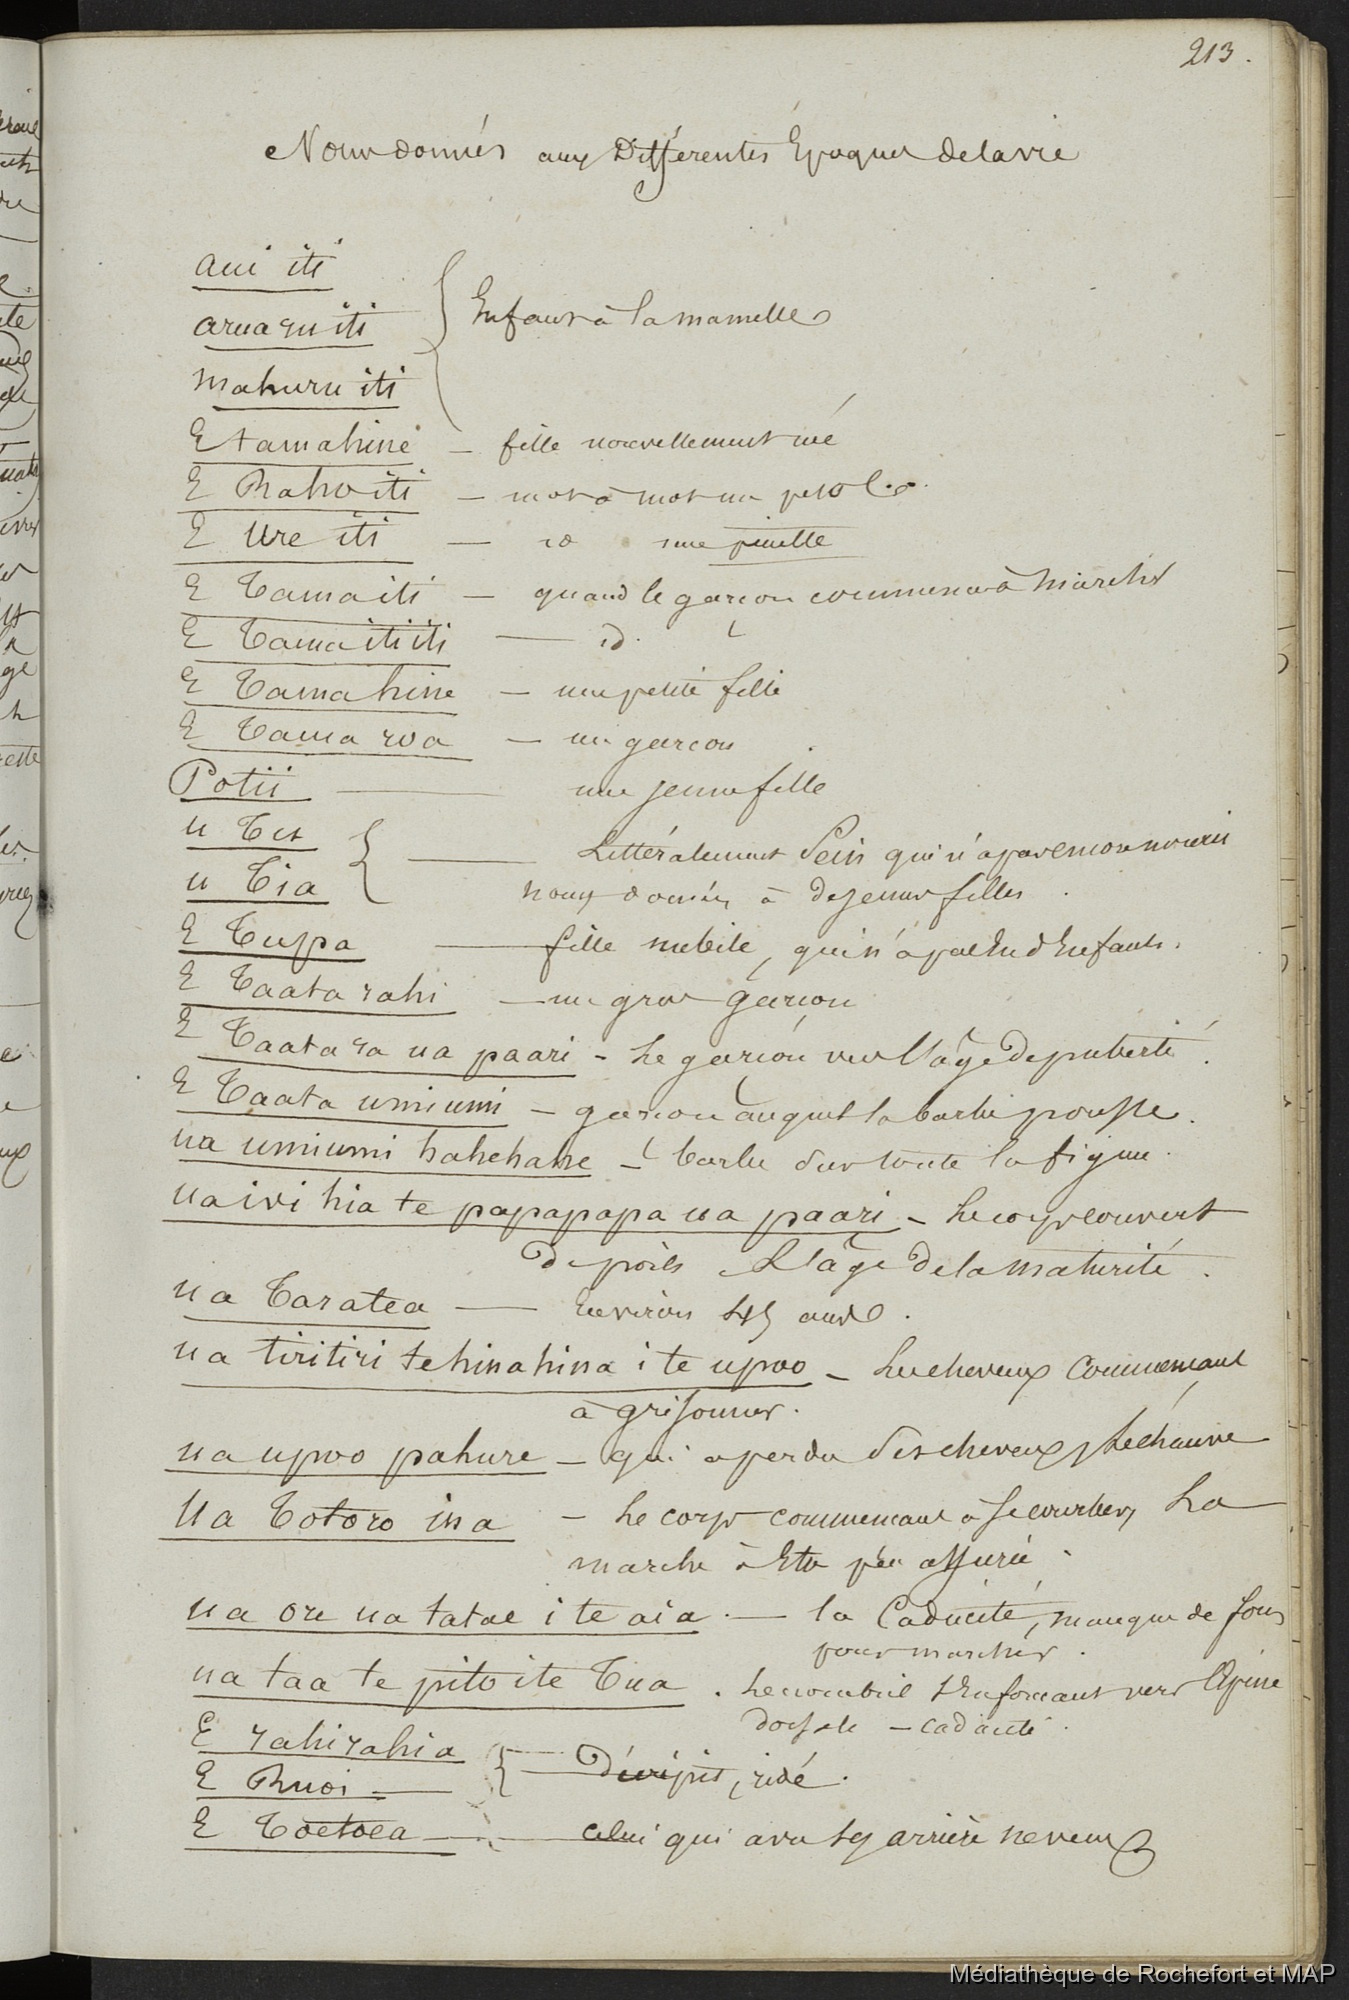 213.
Noms donnés aux Différentes Epoques de la vie
aiu iti
aruaru iti
Enfans à la mamelle
mahuru iti
E tamahine — fille nouvellement né
E Raho iti — mot à mot un petit
E Ure iti — id une pinette
E Tamaiti — quand le garçon commence à marcher
E Tamaitiiti — id.
E Tamahine — une petite fille
E Tamaroa — un garçon
Potii — une jeune fille
u Tei
Littéralement Sein qui n'a pas encore nourri
u Tia
noms donnés à de jeunes filles
E Tuspa — fille nubile, qui n'a pas eu d'Enfants.
E Taata rahi — un gros garçon
E Taata ra ua paari - Le garçon vers l'âge de puberté.
E Taata umiumi — garçon auquel la barbe pousse.
ua umiumi hahehahe — barbe sur toute la figure.
ua ivi hia te papapapa ua paari — Le corps couvert
De poils & l'âge De la maturité.
ua Taratea — Environ 45 ans.
ua tiritiri te hinahina i te upoo — Les cheveux Commencant
à grisonner.
ua upoo pahure — qui a perdu ses cheveux, Le chauve
Ua Totoro ina — Le corps commencant à se courber, La
marche à Etre peu assurée.
ua ore ua tatae i te aia. — la Caducité, manque de force
pour marcher.
ua taa te pito i te Tua. Le nombril s'enfoncant vers l'Epine
dorsale — caducité.
E rahirahia
Décrépit, ridé.
E Ruoi —
E Toetoea — celui qui a vu ses arrière neveux
Médiathèque de Rochefort et MAP